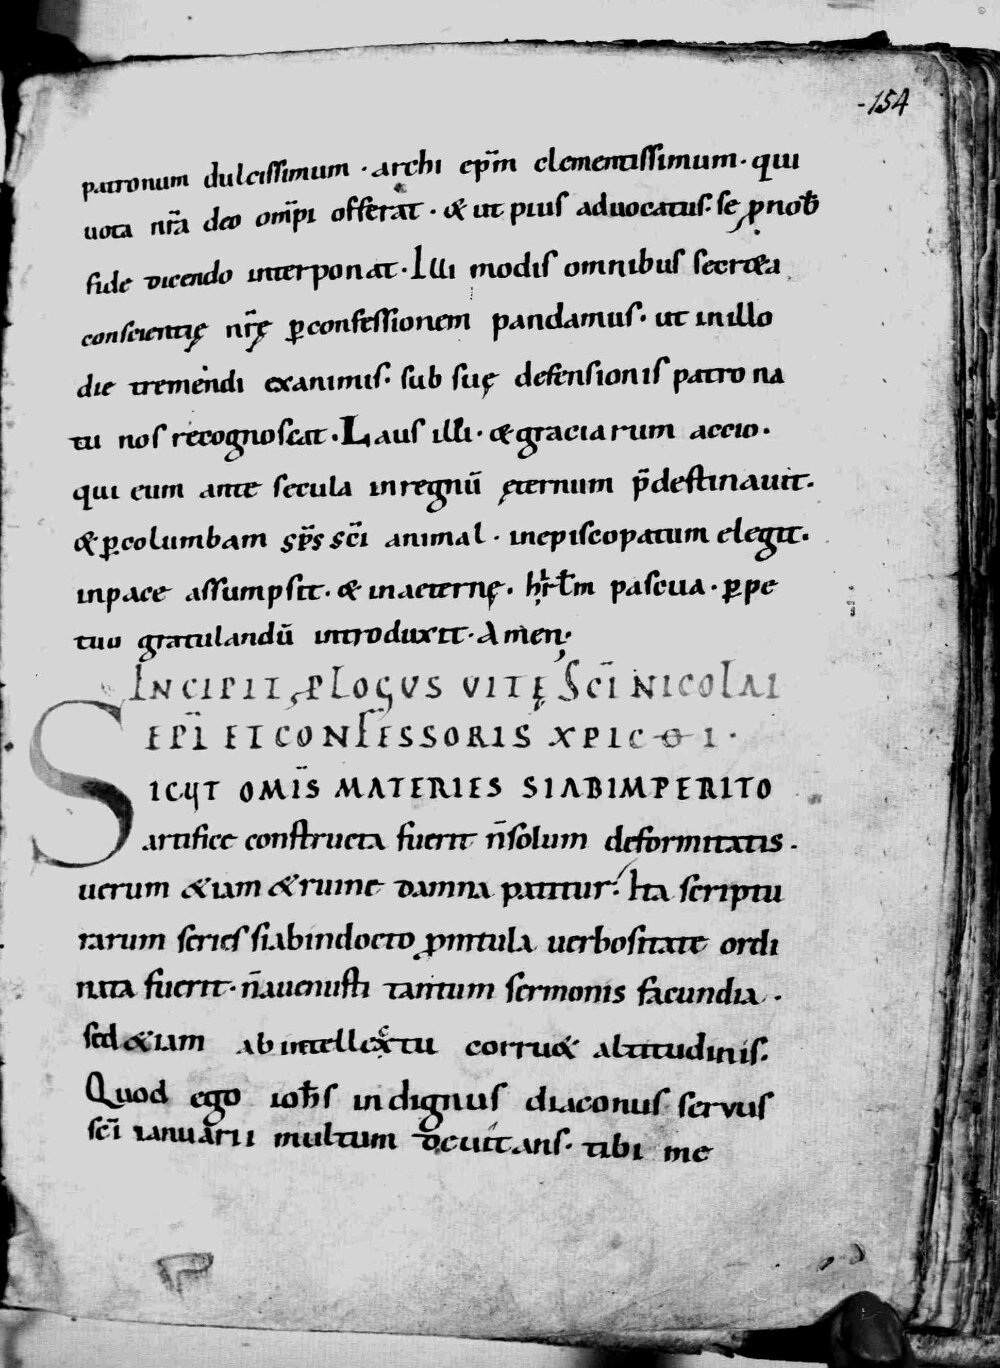 -154
patronum dulcissimum · archi ep̄m clementissimum · qui
uota nr̄a deo om̄pi offerat · & ut pius aduocatus · se ꝓnob̄
fide dicendo interponat · Illi modis omnibus secr&a
conscientię nr̄ę ꝑconfessionem pandamus · ut inillo
die tremendi examinis · sub suę defensionis patrona
tu nos recognoscat · Laus illi · & graciarum accio ·
qui eum ante secula inregnū ęternum p̄destinauit ·
& ꝑcolumbam sp̄s sc̄i animal · inepiscopatum elegit ·
inpace assumpsit · & inaeternę · hr̄l̄m pascua · ꝑpe
tuo gratulandū introduxit · Amen ·
INCIPIT PLOGVS VITĘ SC̄I NICOLAI
EPĪ ET CONFESSORIS XPI
SICUT OMĪS MATERIES SIABIMPERITO
artifice constructa fuerit n̄solum deformitatis ·
uerum &iam &ruine damna patitur · Ita scriptu
rarum series siabindocto ꝓmitula uerbositate ordi
nata fuerit · n̄auenusti tantum sermonis facundia ·
sed&iam ab intellectu corru& altitudinis ·
Quod ego ioh̄s indignus diaconus seruus
sc̄i ianuarii multum deuitans · tibi me